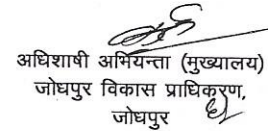 अधिशाषी अभियन्ता (मुख्यालय)
जोधपुर विकास प्राधिकरण,
जोधपुर